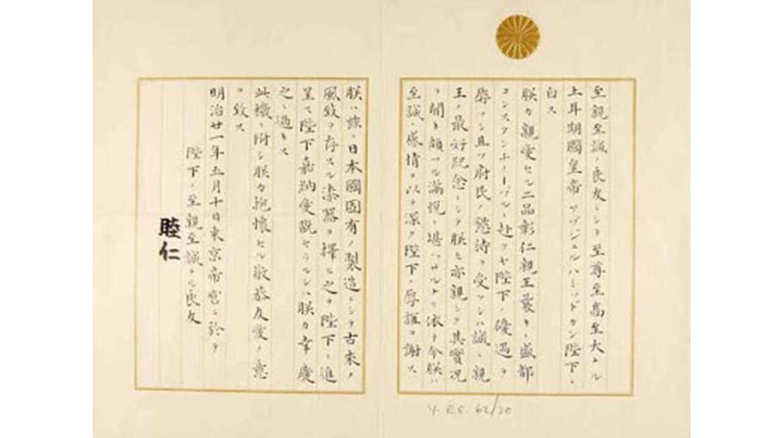 至親至誠ノ良友ニシテ至尊至高至大ナル
土耳期國皇帝アブジュルハミッドカン陛下ニ
白ス
朕カ親愛セル二品彰仁親王曩キニ盛都
コンスタンチノープルニ赴クヤ陛下ノ優遇ヲ
辱フシ且ツ府民ノ懇待ヲ受ケシハ誠ニ親
王ノ最好紀念ニシテ朕モ亦親シク其實況
ヲ聞キ頗フル滿悦ニ堪ヘサルナリ依テ今朕ハ
至誠ノ感情ヲ以テ深ク陛下ノ厚誼ヲ謝ス
朕ハ茲ニ日本國固有ノ製造ニシテ古来ノ
風致ヲ存スル漆器ヲ擇ヒ之ヲ陛下ニ進
呈ス陛下嘉納愛翫セラレンハ朕カ幸慶
之ニ過キス
此機ニ附シ朕カ抱懐セル敬恭友愛ノ意
ヲ致ス
明治廿一年五月十日東京帝宮ニ於テ
陛下ノ至親至誠ナル良友
睦仁
Y.EE. 62/20